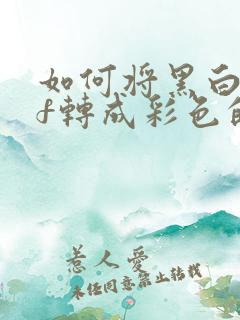 如何将黑白
f轉成彩色
惹人愛
未经同意禁止转载